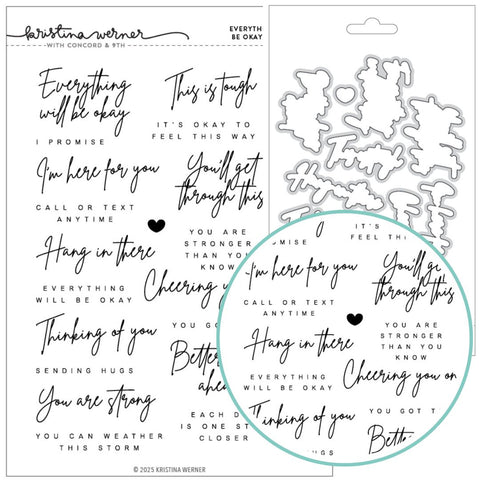 kristina werner
WITH CONCORD & 9TH
EVERYTH
BE OKAY
Everything
will be okay
I PROMISE
This is tough
IT'S OKAY TO
FEEL THIS WAY
I'm here for you
CALL OR TEXT
ANYTIME
You'll get
through this
YOU ARE
STRONGER
THAN YOU
KNOW
Hang in there
EVERYTHING
WILL BE OKAY
Cheering you
YOU GO
Thinking of you
SENDING HUGS
Better
ahea
EACH D
IS ONE ST
CLOSER
You are strong
YOU CAN WEATHER
THIS STORM
© 2025 KRISTINA WERNER
OMISE
I'm here for you
CALL OR TEXT
ANYTIME
You'll ge
through this
YOU ARE
STRONGER
THAN YOU
KNOW
Hang in there
EVERYTHING
WILL BE OKAY
Cheering you on
YOU GOT T
Thinking of you
Bette